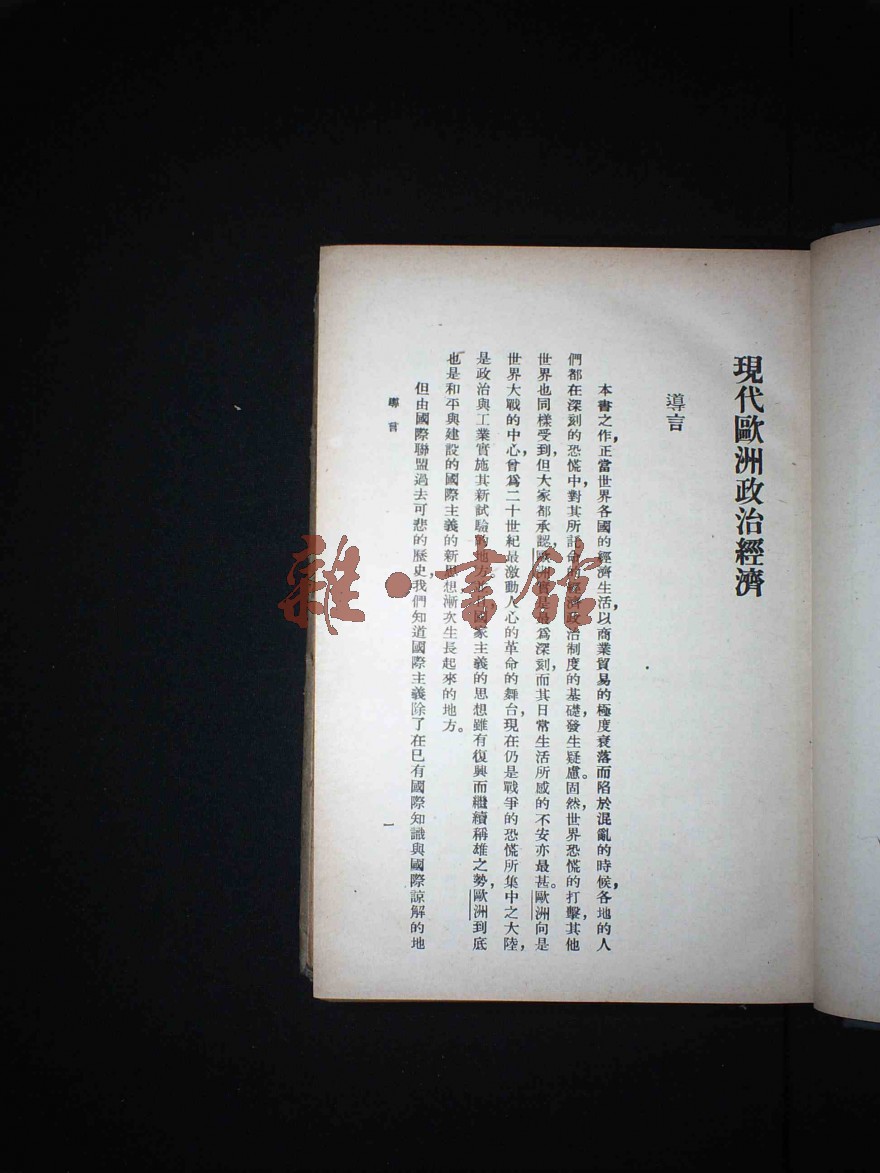 現代歐洲政治經濟
導言
本書之作，正當世界各國的經濟生活，以商業貿易的極度衰落而陷於混亂的時候，各地的人
們都在深刻的恐慌中，對其所託命的經濟政治制度的基礎，發生疑慮。固然，世界恐慌的打擊，其他
世界也同樣受到，但大家都承認，歐洲實是最爲深刻，而其日常生活所感的不安亦最甚。歐洲向是
世界大戰的中心，曾爲二十世紀最激動人心的革命的舞台，現在仍是戰爭的恐慌所集中之大陸，
是政治與工業實施其新試驗的地方。國家主義的思想雖有復興而繼續稱雄之勢，歐洲到底
也是和平與建設的國際主義的新思想漸次生長起來的地方。
但由國際聯盟過去可悲的歷史，我們知道國際主義除了在已有國際知識與國際諒解的地
導言
一
雜·書館